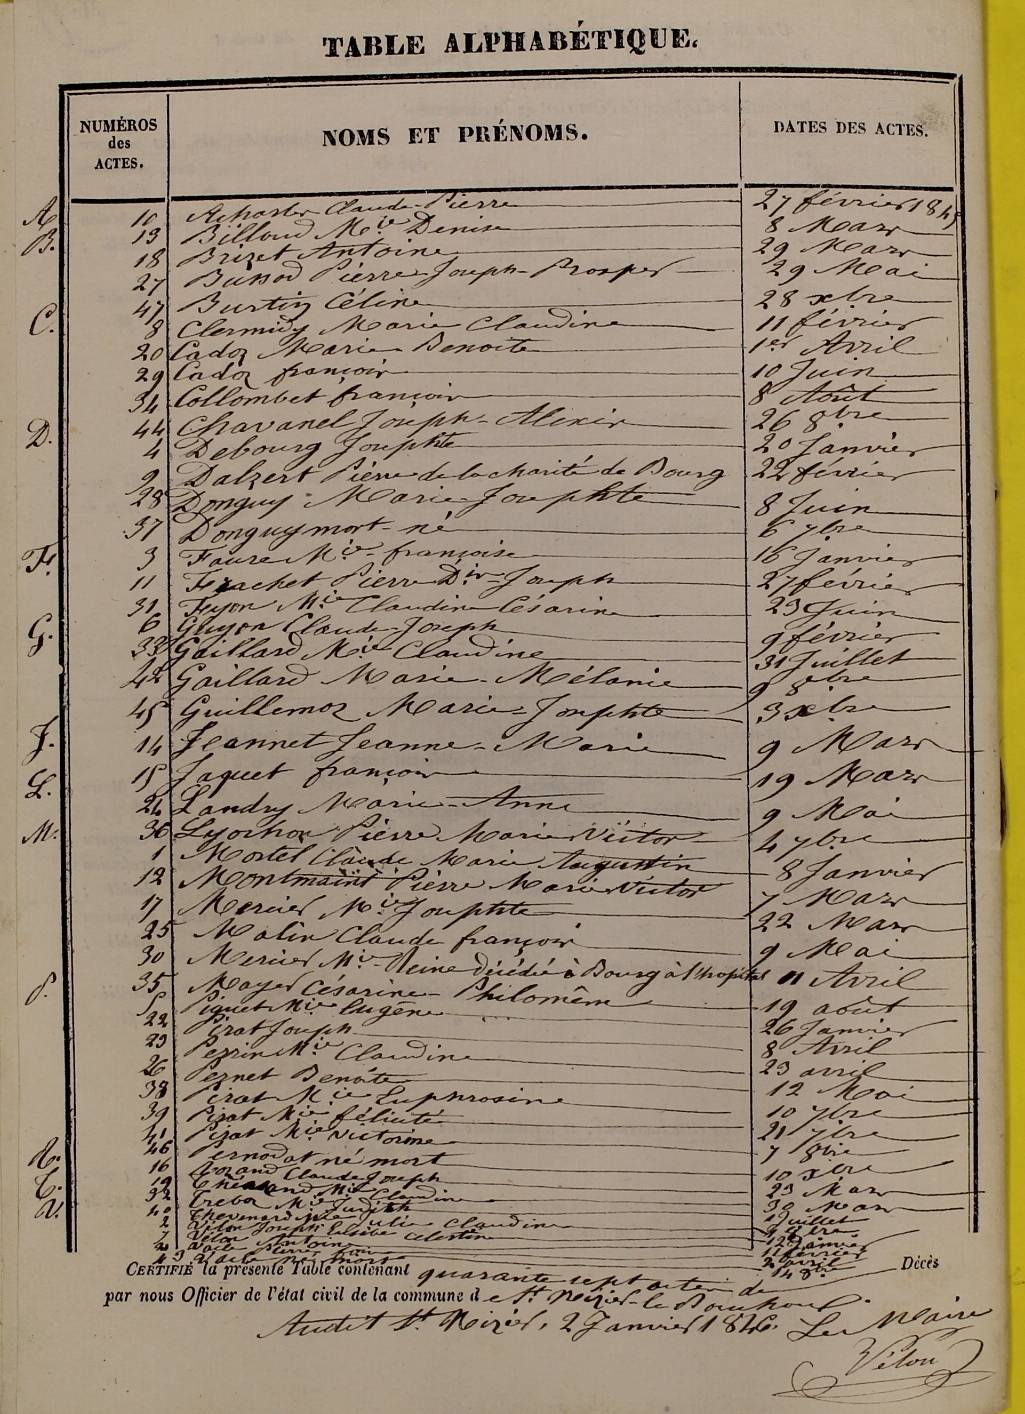 TABLE ALPHABÉTIQUE.
NUMÉROS des ACTES. NOMS ET PRÉNOMS. DATES DES ACTES.
A. 10 Claude Pierre 27 février 1845
B. 13 Billoud Mie Denise 8 Mars
18 Brizet Antoine 29 Mars
27 Buisson Pierre Joseph Prosper 29 Mai
47 Burtin Céline 28 xbre
C. 8 Clermidy Marie Claudine 11 février
20 Cadoz Marie Benoite 1er Avril
29 Cadoz françois 10 Juin
34 Collombet françois 8 Août
44 Chavanel Joseph Alexis 26 8bre
D. 4 Debourg Josephte 20 Janvier
9 Dalzert Pierre de la charité de Bourg 22 février
28 Donguy Marie Josephte 8 Juin
37 Donguy mort-né 6 7bre
F. 3 Faure Mie françoise 16 Janvier
11 Frachet Pierre Joseph 27 février
31 Fyon Mie Claudine Césarine 23 Juin
G. 6 Guyon Claude Joseph 9 février
33 Gaillard Mie Claudine 31 Juillet
42 Gaillard Marie Mélanie 9 8bre
45 Guillemoz Marie Josephte 3 xbre
J. 14 Jeannet Jeanne Marie 9 Mars
15 Jaquet françois 19 Mars
L. 24 Landry Marie Anne 9 Mai
36 Lyochon Pierre Marie Victor 4 7bre
M. 1 Mortel Claude Marie Augustin 8 Janvier
12 Montmaint Pierre Marie Victor 7 Mars
17 Mercier Mie Josephte 22 Mars
25 Matin Claude françois 9 Mai
30 Mercier Mie Reine décédée à Bourg à l'hopital 11 Avril
35 Mayer Césarine Philomène 19 août
P. 5 Piquet Mie Eugène 26 Janvier
22 Pirat Joseph 8 Avril
23 Perrin Mie Claudine 23 avril
26 Pernet Benoite 12 Mai
38 Pirat Mie Euphrosine 10 7bre
39 Pirat Mie félicité 21 7bre
41 Pirat Mie Victorine 7 8bre
46 Pernodat né mort 10 xbre
R. 16 Claude Joseph 23 Mars
T. 19 Mie Claudine 30 Mars
V. 32 Treboz Mie Judith Juillet
40
2 Vélon Joseph Claudine Janvier
7 Vélon Célestine 11 février
Antoine avril
Pierre
né mort 14 8bre
CERTIFIÉ la présente Table contenant quarante sept actes de Décès
par nous Officier de l'état civil de la commune de St Nizier-le-Bouchoux.
Audit St Nizier, 2 Janvier 1846. Le Maire
Vélon